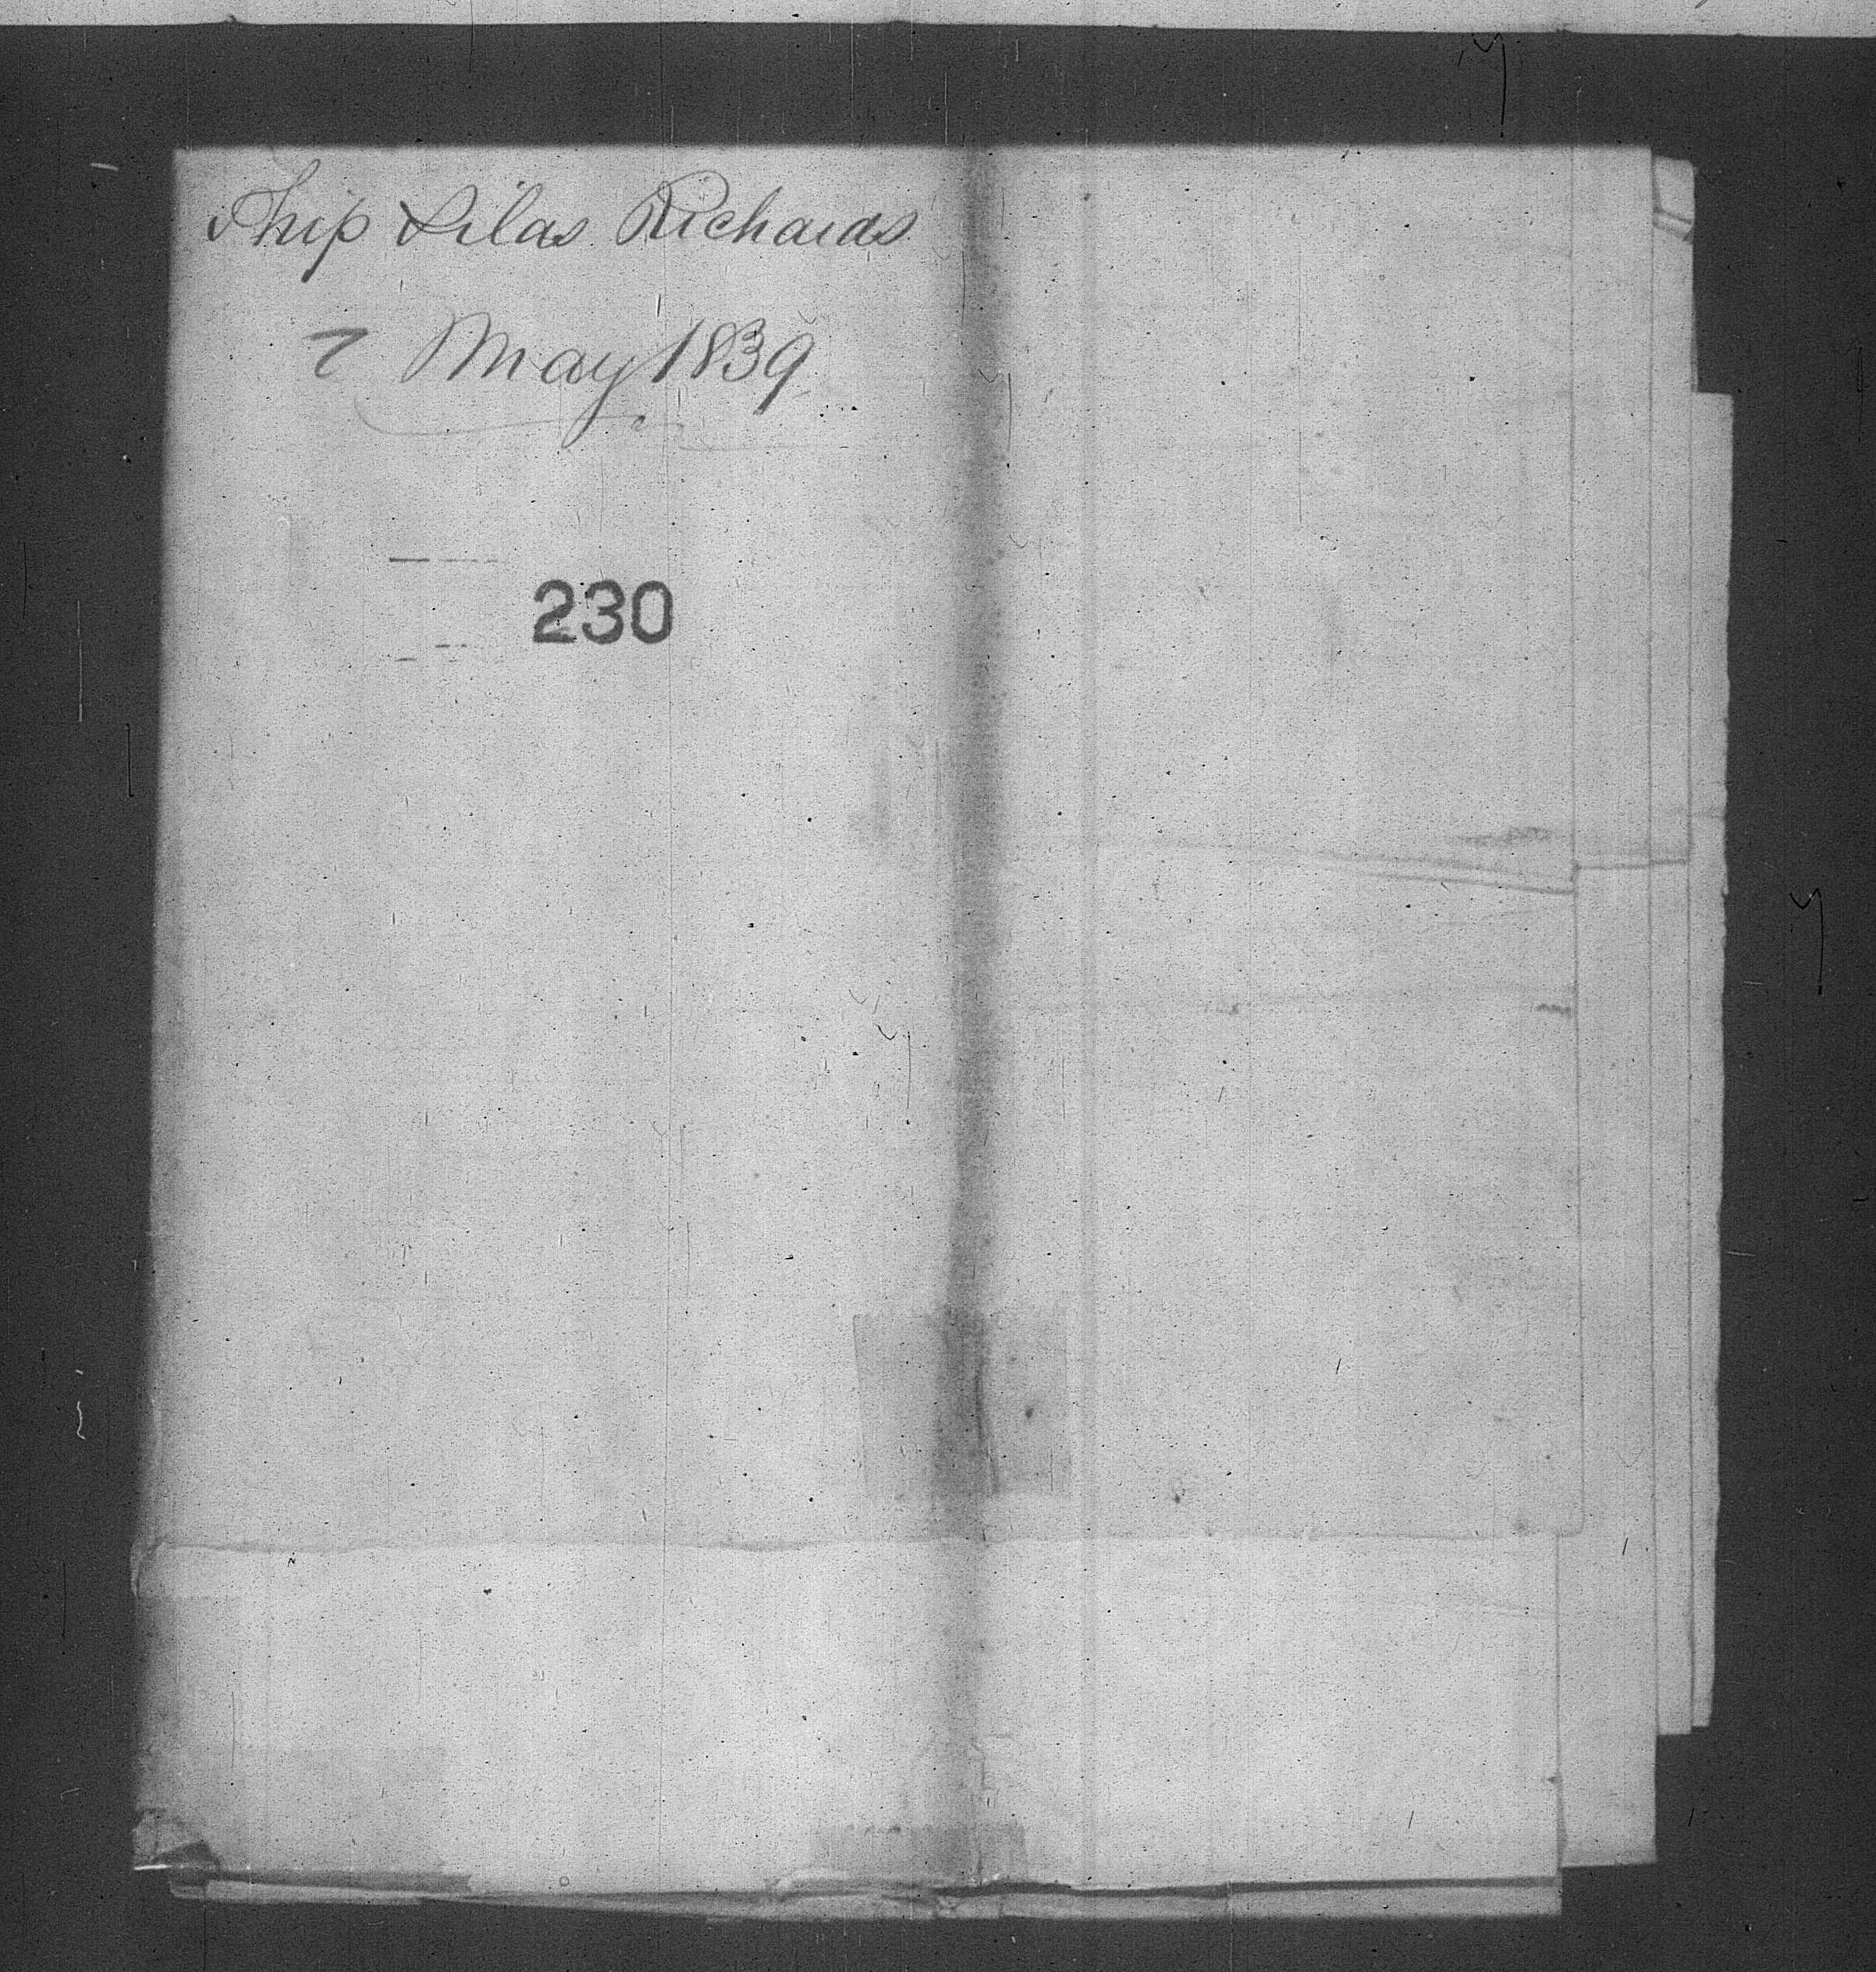 Ship Silas Richards
7 May 1839
230